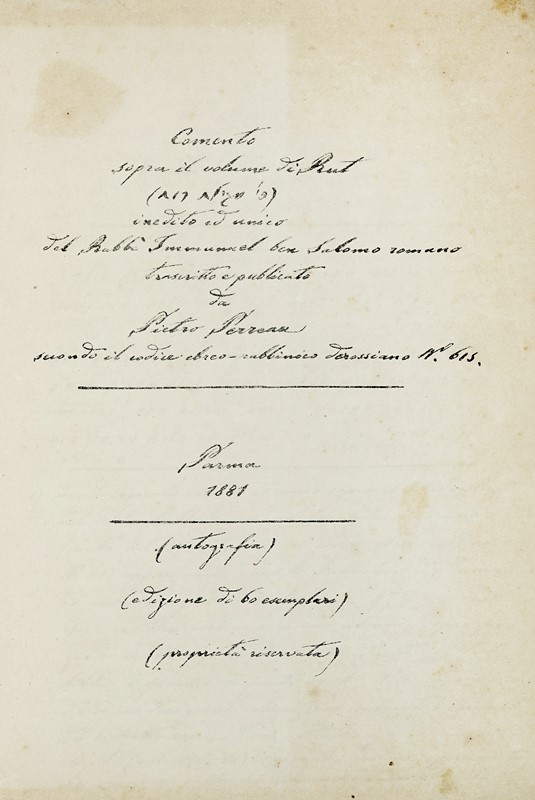 Comento
sopra il volume di Rut
(פי' מגלת רות)
inedito ed unico
del Rabbi Immanuel ben Salomo romano
trascritto e publicato
da
Pietro Perreau
secondo il codice ebreo-rabbinico derossiano N.º 615.
Parma
1881
(autografia)
(edizione di 60 esemplari)
(proprietà riservata)